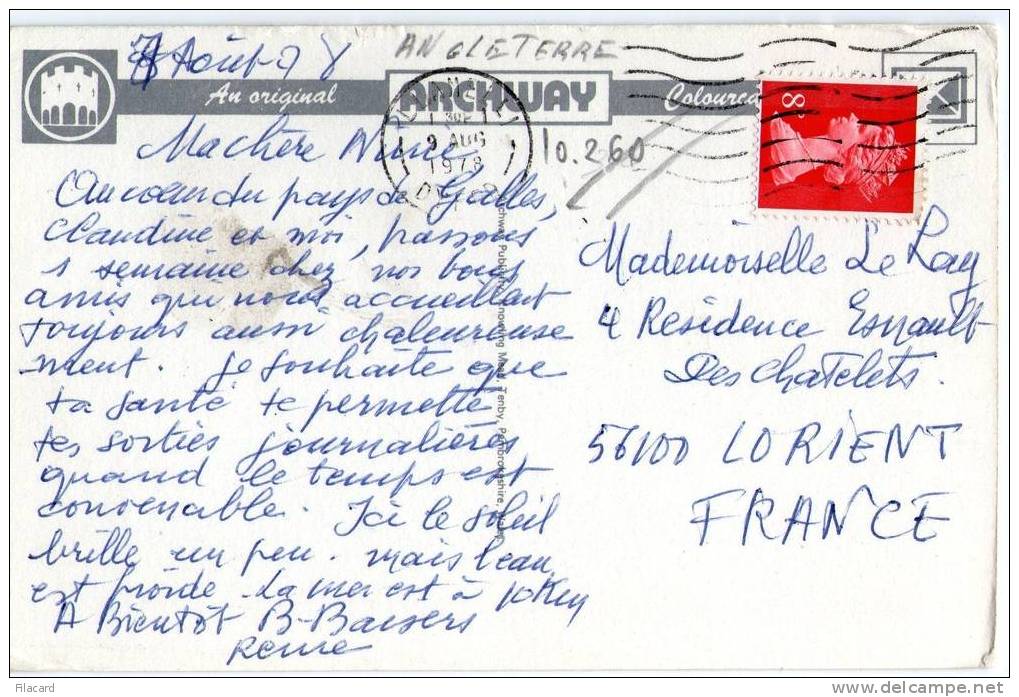 7 Août 78
ANGLETERRE
An original ARCHWAY Colourca
2 AUG
1978
10.260
8
Ma chère
Au coeur du pays de Galles,
Claudine et moi, passons
1 semaine chez nos bons
amis qui nous accueillent
toujours aussi chaleureuse
ment. Je souhaite que
ta santé te permette
tes sorties journalières
quand le temps est
convenable. Ici le soleil
brille un peu. mais l'eau
est froide. La mer est à 10 Km
A Bientôt B-Baisers
Reine
Mademoiselle Le Ray
4 Résidence Esnault
Des Chatelets.
56100 LORIENT
FRANCE
Tenby, Pembrokeshire
Filacard
www.delcampe.net